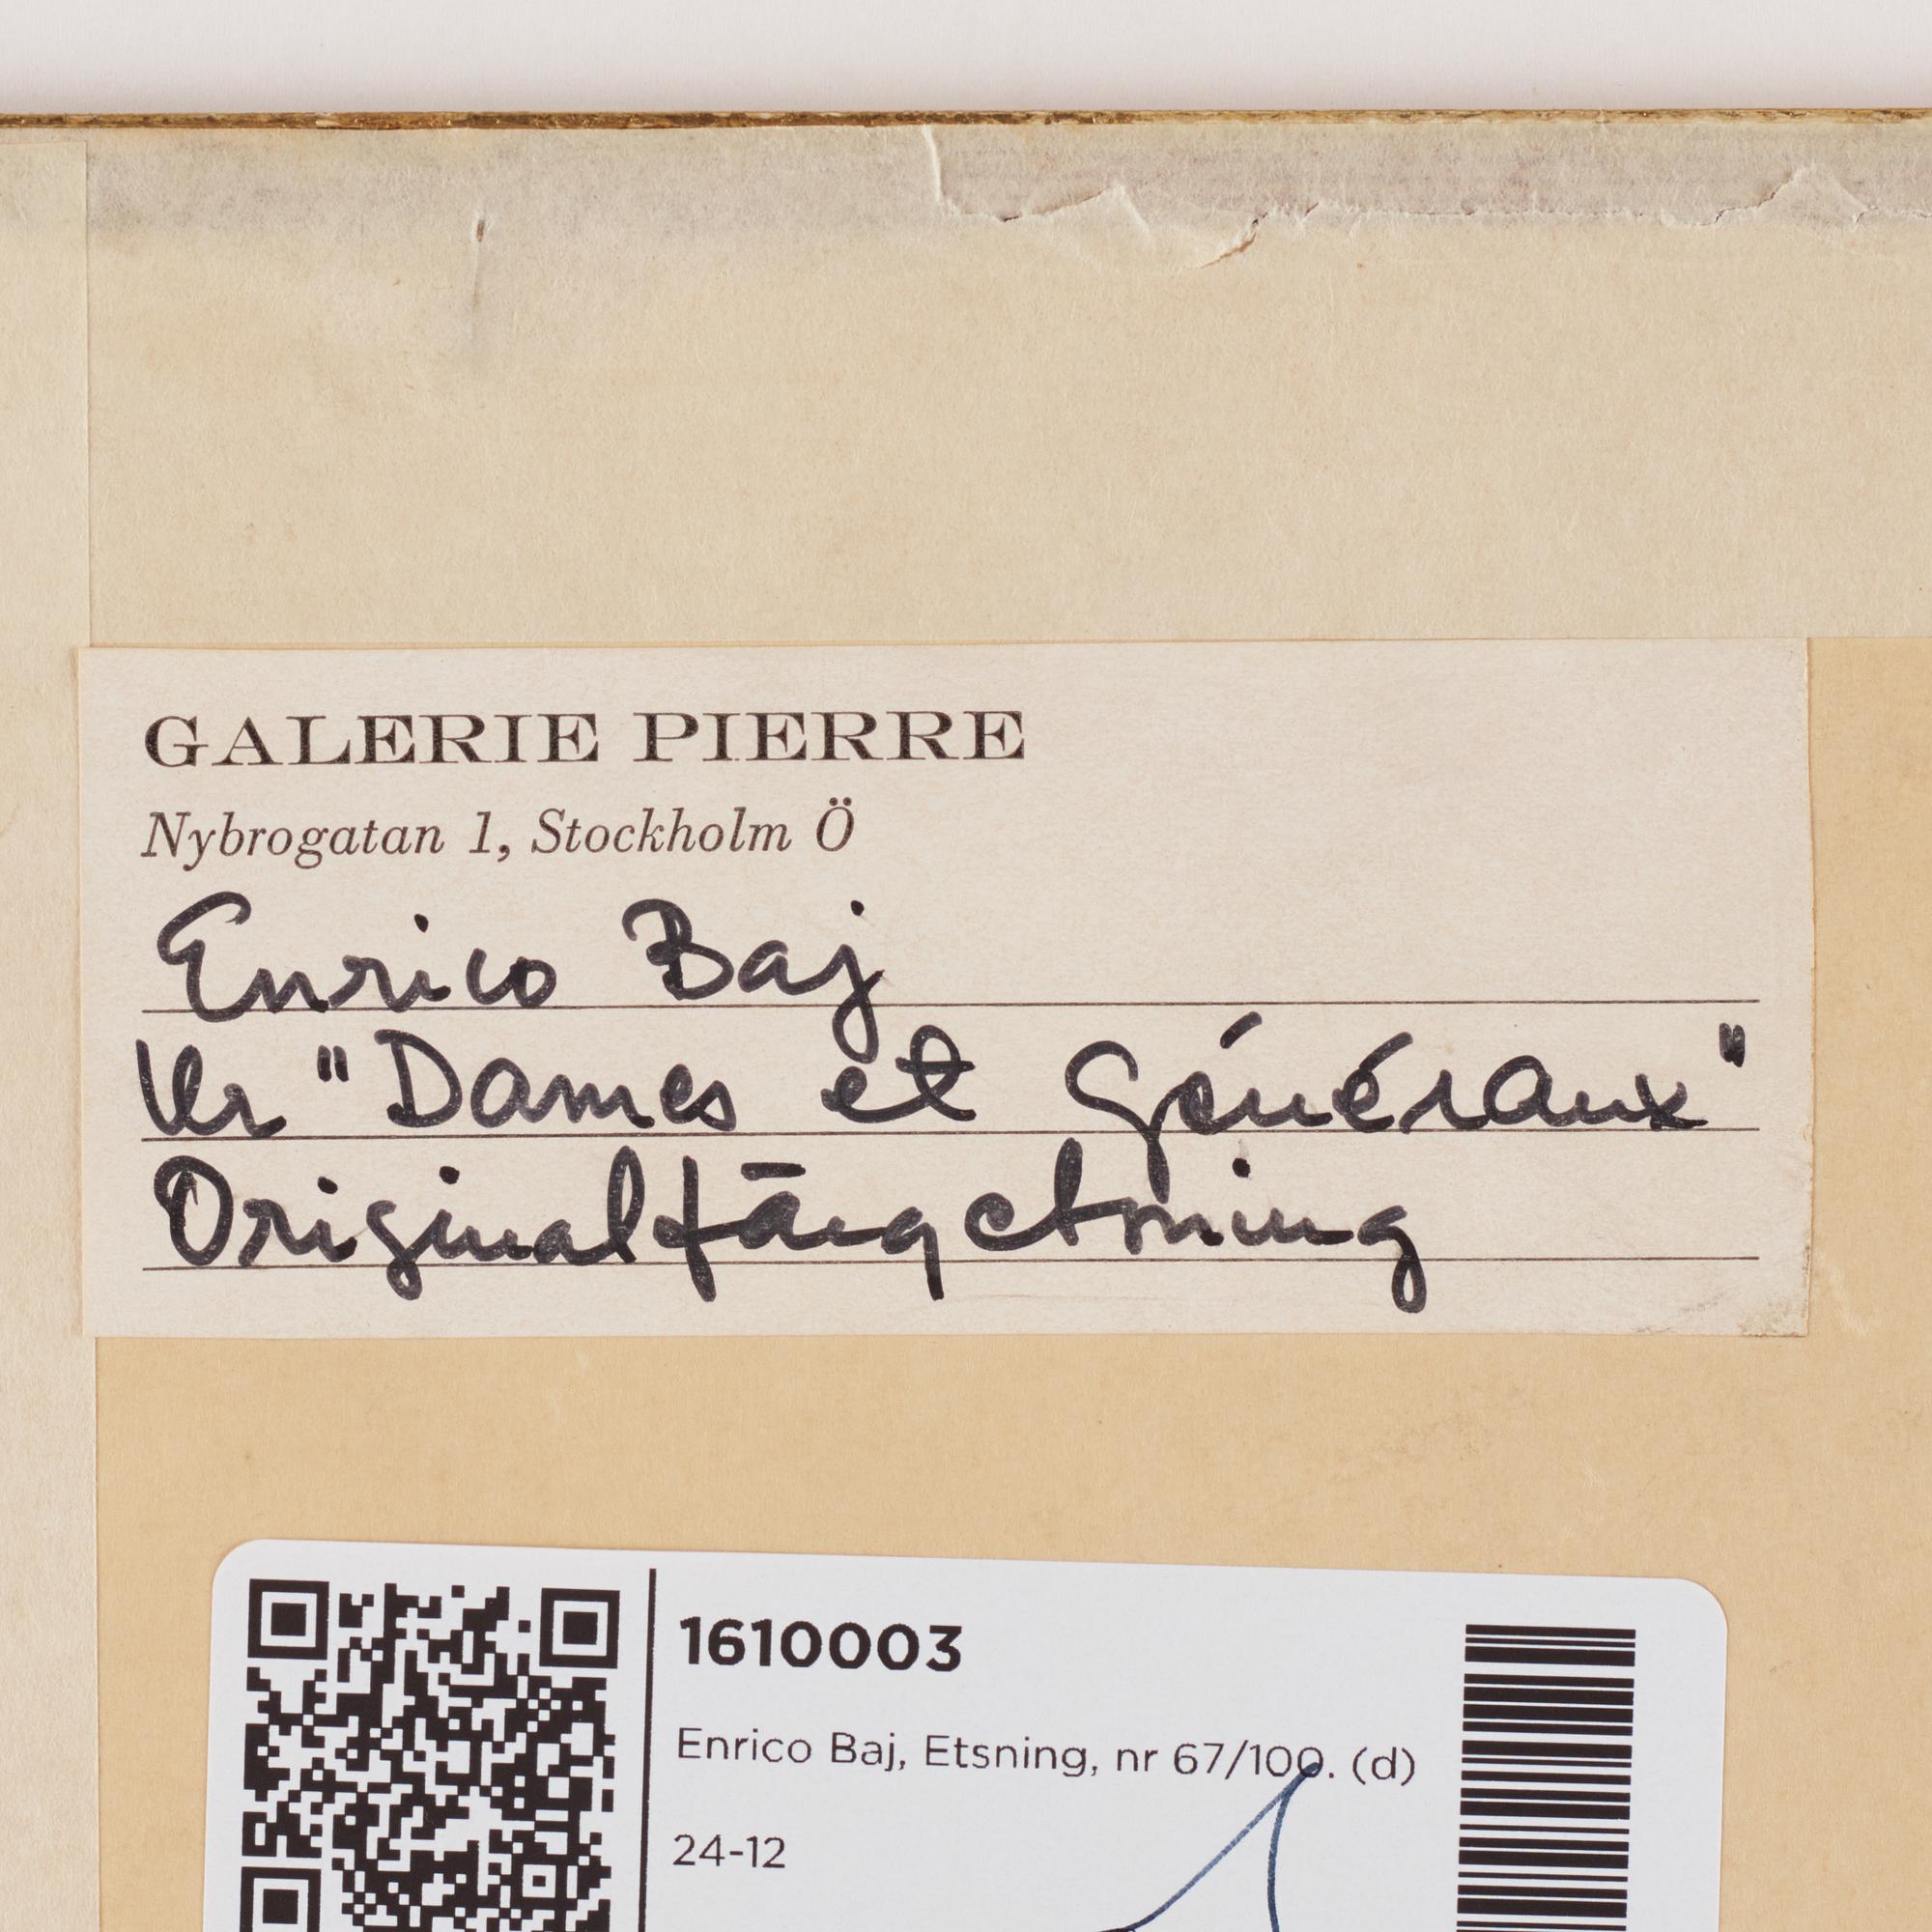 GALERIE PIERRE
Nybrogatan 1, Stockholm Ö
Enrico Baj
Ur "Dames et Généraux"
Originalfärgetsning
1610003
Enrico Baj, Etsning, nr 67/100. (d)
24-12